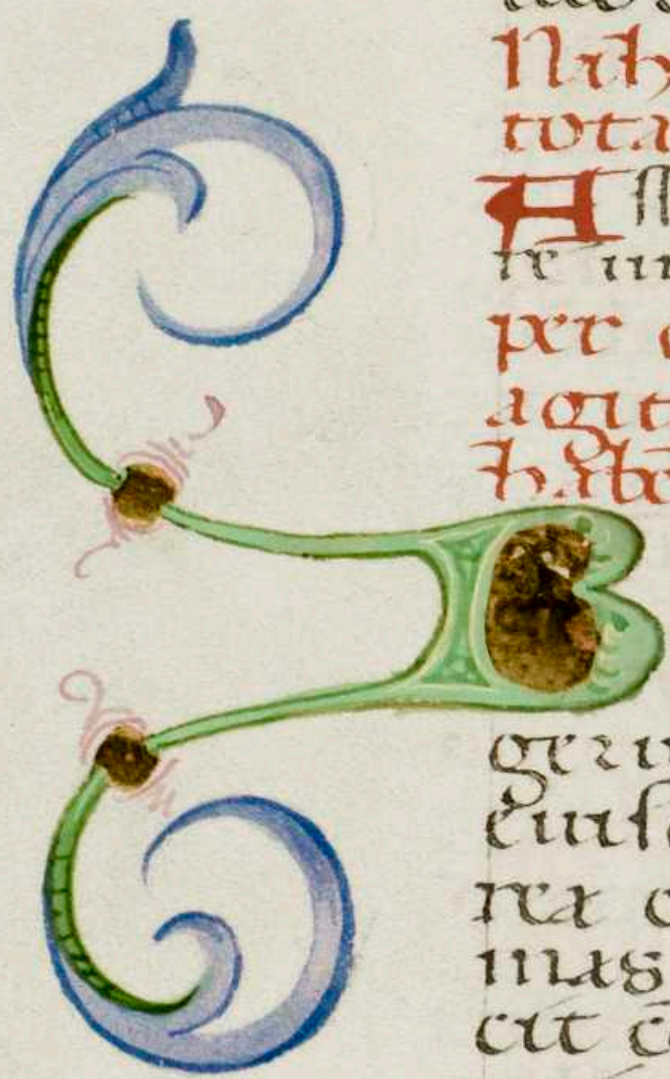 Nih
tota
A ſſ
re in
per
agit
habe
B
geru
cuiſ
rex c
mag
cit c